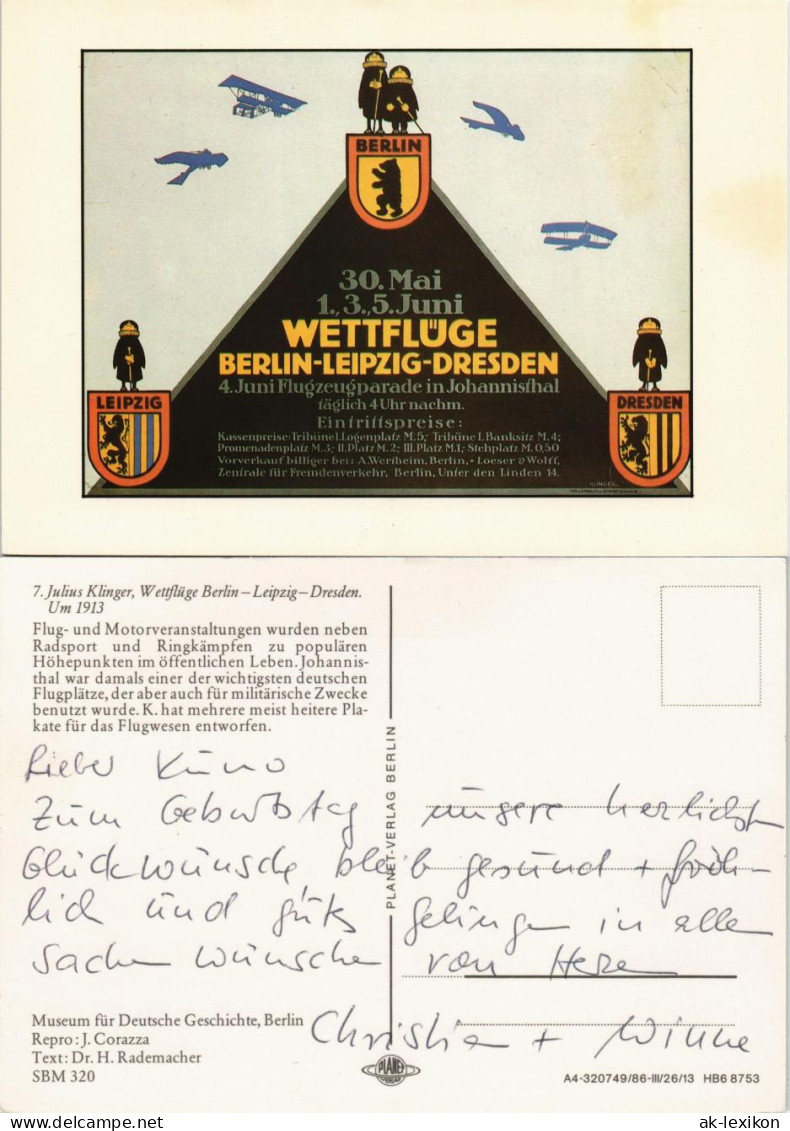 BERLIN
30. Mai
1., 3., 5. Juni
WETTFLÜGE
BERLIN-LEIPZIG-DRESDEN
4. Juni Flugzeugparade in Johannisthal
täglich 4 Uhr nachm.
Eintrittspreise:
Kassenpreise: Tribüne I. Logenplatz M. 5; Tribüne I. Banksitz M. 4;
Promenadenplatz M. 3; II. Platz M. 2; III. Platz M. 1; Stehplatz M. 0,50
Vorverkauf billiger bei: A. Wertheim, Berlin, • Loeser & Wolff,
Zentrale für Fremdenverkehr, Berlin, Unter den Linden 14.
LEIPZIG
DRESDEN
KLINGER
7. Julius Klinger, Wettflüge Berlin – Leipzig – Dresden.
Um 1913
Flug- und Motorveranstaltungen wurden neben
Radsport und Ringkämpfen zu populären
Höhepunkten im öffentlichen Leben. Johannis-
thal war damals einer der wichtigsten deutschen
Flugplätze, der aber auch für militärische Zwecke
benutzt wurde. K. hat mehrere meist heitere Pla-
kate für das Flugwesen entworfen.
Lieber Kuno
Zum Geburtstag unsere herzlichsten
Glückwünsche bleib gesund + fröh-
lich und gutes Gelingen in allen
Sachen wünschen von Herzen
Christian + Winne
PLANET-VERLAG BERLIN
Museum für Deutsche Geschichte, Berlin
Repro: J. Corazza
Text: Dr. H. Rademacher
SBM 320
PLANET
VERLAG
A4-320749/86-III/26/13 HB6 8753
ak-lexikon